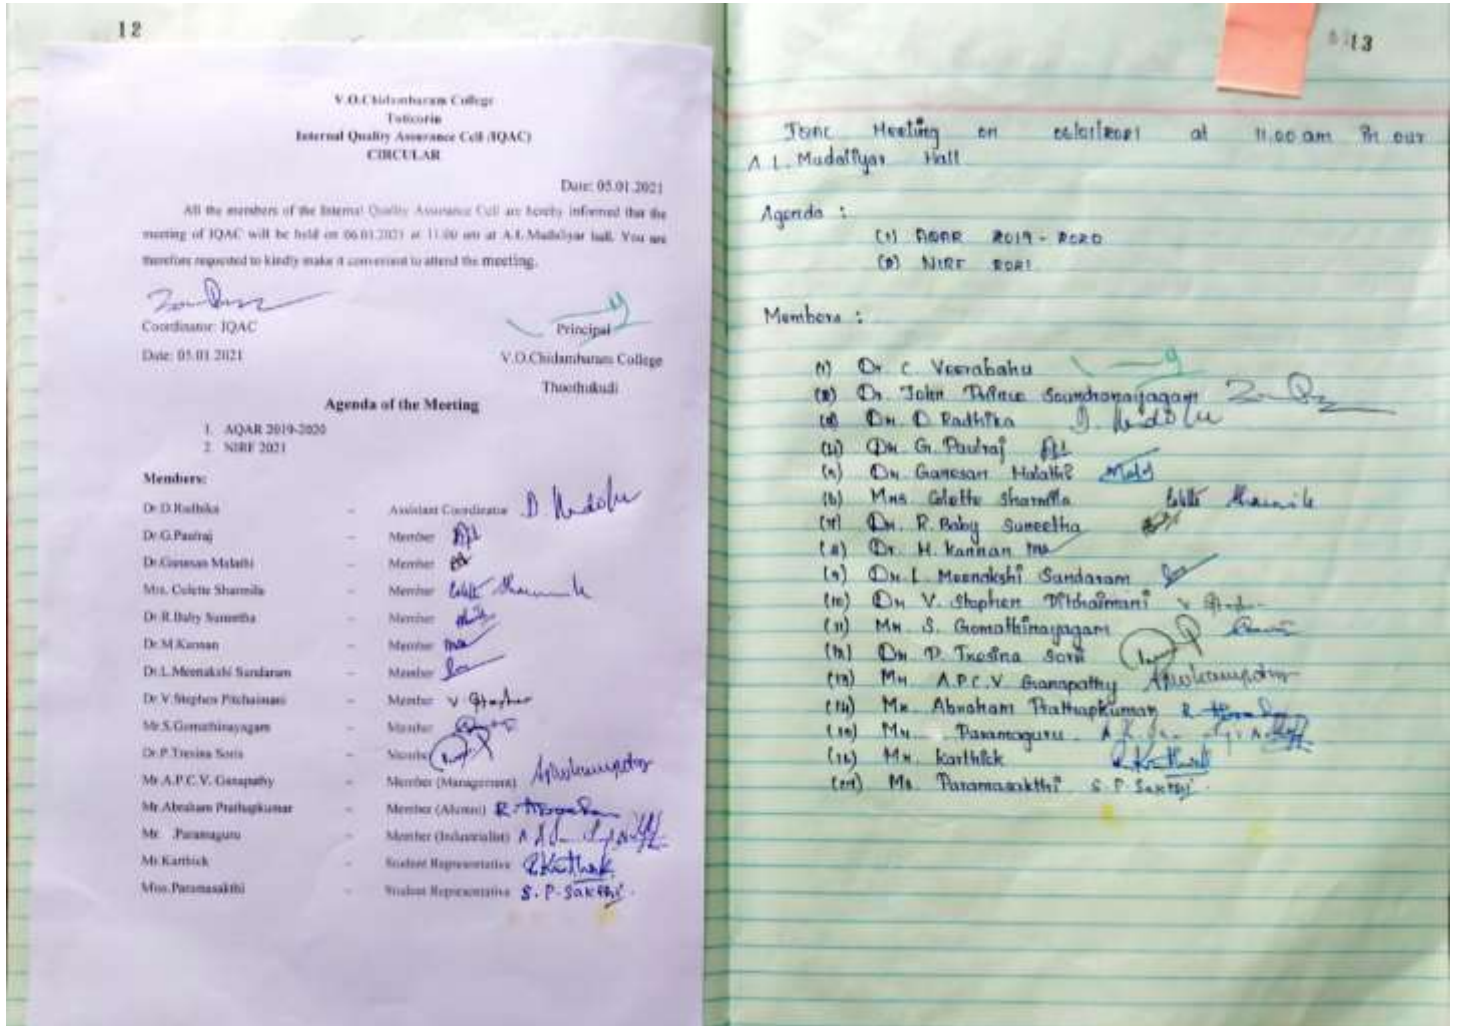 12
V.O.Chidambaram College
Tuticorin
Internal Quality Assurance Cell (IQAC)
CIRCULAR
Date: 05.01.2021
All the members of the Internal Quality Assurance Cell are hereby informed that the
meeting of IQAC will be held on 06.01.2021 at 11.00 am at A.L.Mudhliyar hall. You are
therefore requested to kindly make it convenient to attend the meeting.
Coordinator: IQAC
Principal
Date: 05.01.2021
V.O.Chidambaram College
Thoothukudi
Agenda of the Meeting
1. AQAR 2019-2020
2. NIRF 2021
Members:
Dr.D.Radhika – Assistant Coordinator
Dr.G.Paulraj – Member
Dr.Ganesan Malathi – Member
Mrs. Colette Sharmila – Member
Dr.R.Baby Suneetha – Member
Dr.M.Kannan – Member
Dr.L.Meenakshi Sundaram – Member
Dr.V.Stephen Pitchaimani – Member V Stephen
Mr.S.Gomathinayagam – Member
Dr.P.Tresina Soris – Member
Mr.A.P.C.V. Ganapathy – Member (Management)
Mr.Abraham Prathapkumar – Member (Alumni)
Mr. .Paramaguru – Member (Industrialist)
Mr.Karthick – Student Representative R.Karthick
Miss.Paramasakthi – Student Representative S.P.Sakthi.
13
Meeting on 06/01/2021 at 11.00 am in our
A.L. Mudalliyar Hall
Agenda :
(1) AQAR 2019 - 2020
(2) NIRF 2021
Members :
(1) Dr. C. Veerabahu
(2) Dr. John Prince Soundranayagam
(3) Dr. D. Radhika
(4) Dr. G. Paulraj
(5) Dr. Ganesan Malathi
(6) Mrs. Colette Sharmila
(7) Dr. R. Baby Suneetha
(8) Dr. M. Kannan
(9) Dr. L. Meenakshi Sundaram
(10) Dr. V. Stephen Pitchaimani
(11) Mr. S. Gomathinayagam
(12) Dr. P. Tresina Soris
(13) Mr. A.P.C.V. Ganapathy
(14) Mr. Abraham Prathapkumar
(15) Mr. Paramaguru
(16) Mr. Karthick R.Karthick
(17) Ms. Paramasakthi S.P.Sakthi.